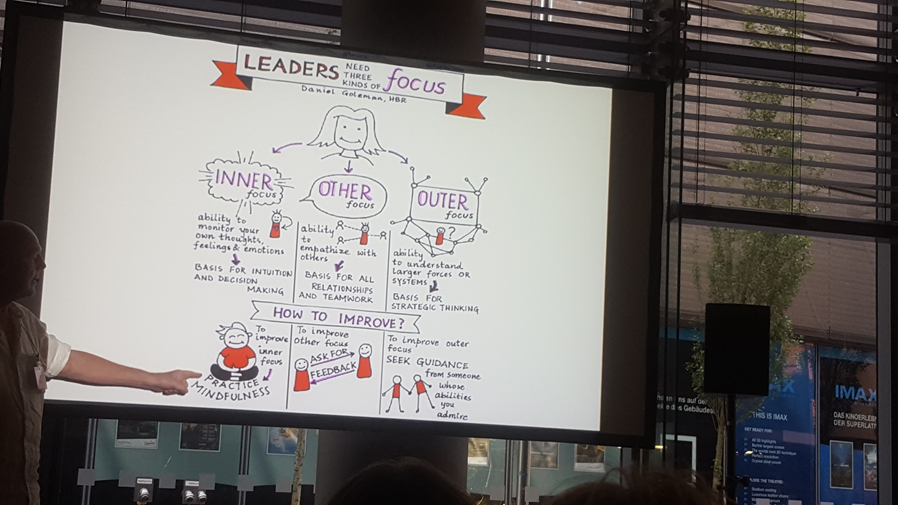 LEADERS NEED THREE KINDS OF focus
Daniel Goleman, HBR
INNER
focus
OTHER
focus
OUTER
focus
?
ability to
monitor your
own thoughts,
feelings & emotions
BASIS FOR INTUITION
AND DECISION
MAKING
ability
to
empathize with
others
BASIS FOR ALL
RELATIONSHIPS
AND TEAMWORK
ability
to understand
larger forces OR
SYSTEMS
BASIS FOR
STRATEGIC THINKING
HOW TO IMPROVE?
To
improve
inner
focus
PRACTICE
MINDFULNESS
To improve
other focus
ASK FOR
FEEDBACK
To improve outer
focus
SEEK GUIDANCE
from someone
whose
abilities
you
admire
THIS IS IMAX
IMAX
DAS KINDERLEB
DER SUPERLATI